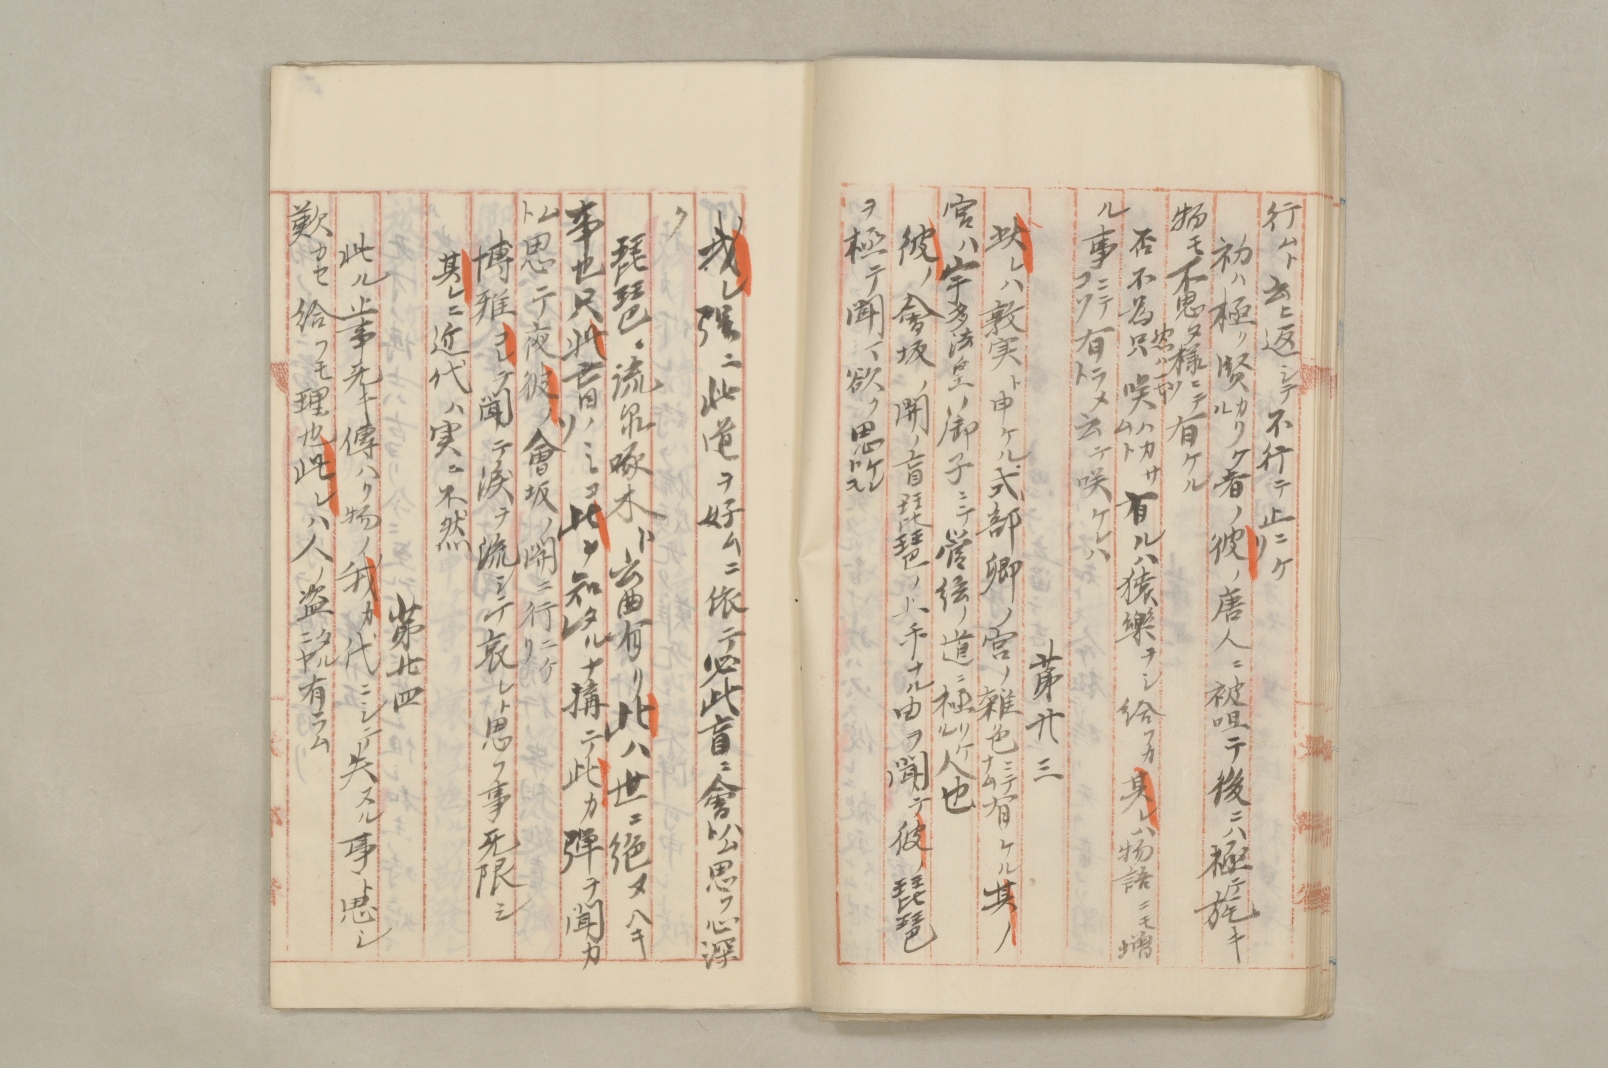 行ムト云ヒ返シテ不行テ止ニケリ
初ハ極ク賢カリケル者ノ彼ノ唐人ニ被咀テ後ニハ極テ旄キ
物モ不思ヌ様ニテゾ有ケル
否不為只咲ハカサムト有ルハ猿樂ヲシ給フカ其レハ物語ニモ増
ル事ニテコソ有ラメト云テ咲ケレハ
第廿三
此レハ敦実ト申ケル式部卿ノ宮ノ雑色ニテナム有ケル其ノ
宮ハ宇多法皇ノ御子ニテ管絃ノ道ニ極リケル人也
彼ノ會坂ノ関ノ盲琵琶ノ上手ナル由ヲ聞テ彼ノ琵琶
ヲ極テ聞マ欲ク思ケレドモ
我レ強ニ此道ヲ好ムニ依テ必此盲ニ會ハムト思フ心深
ク
琵琶ニ流泉啄木ト云曲有リ此ハ世ニ絶ヌヘキ
事也只此盲ノミコソ此ヲ知タルナレ構テ此カ弾ヲ聞カ
ムト思テ夜彼ノ會坂ノ関ニ行ニケリ
博雅コレヲ聞テ涙ヲ流シテ哀レト思フ事无限シ
其レニ近代ハ実ニ不然
第廿四
此ル止事无キ傳ハリ物ノ我カ代ニシテ失ヌル事ト思シ
歎カセ給フモ理也此レハ人ノ盗ニタルニヤ有ラム